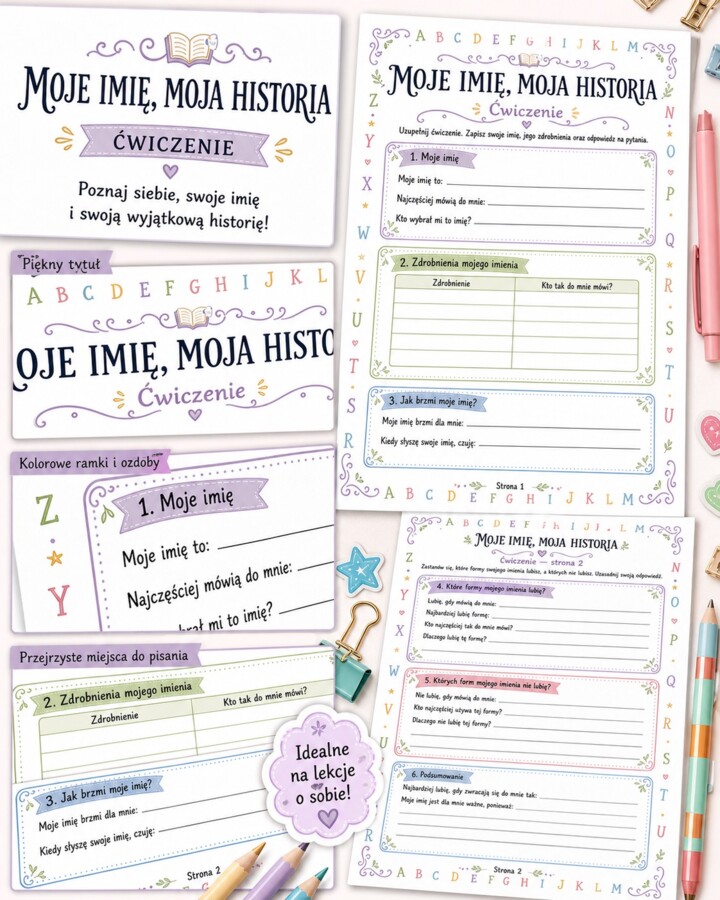 MOJE IMIĘ, MOJA HISTORIA
ĆWICZENIE
Poznaj siebie, swoje imię
i swoją wyjątkową historię!
Piękny tytuł
A B C D E F G H I J K L
OJE IMIĘ, MOJA HISTO
Ćwiczenie
Kolorowe ramki i ozdoby
Z
Y
1. Moje imię
Moje imię to:
Najczęściej mówią do mnie:
brał mi to imię?
Przejrzyste miejsca do pisania
2. Zdrobnienia mojego imienia
Zdrobnienie Kto tak do mnie mówi?
3. Jak brzmi moje imię?
Moje imię brzmi dla mnie:
Kiedy słyszę swoje imię, czuję:
Strona 2
Idealne
na lekcje
o sobie!
A B C D E F G H I J K L M
MOJE IMIĘ, MOJA HISTORIA
Ćwiczenie
Uzupełnij ćwiczenie. Zapisz swoje imię, jego zdrobnienia oraz odpowiedz na pytania.
Z Y X W V U T S R
N O P Q R S T U
1. Moje imię
Moje imię to:
Najczęściej mówią do mnie:
Kto wybrał mi to imię?
2. Zdrobnienia mojego imienia
Zdrobnienie Kto tak do mnie mówi?
3. Jak brzmi moje imię?
Moje imię brzmi dla mnie:
Kiedy słyszę swoje imię, czuję:
Strona 1
A B C D E F G H I J K L M
A B C D E F G H
MOJE IMIĘ, MOJA HISTORIA
Ćwiczenie — strona 2
Zastanów się, które formy swojego imienia lubisz, a których nie lubisz. Uzasadnij swoją odpowiedź.
Z Y X W V U T S R
N O P Q R S T U
4. Które formy mojego imienia lubię?
Lubię, gdy mówią do mnie:
Najbardziej lubię formę:
Kto najczęściej tak do mnie mówi?
Dlaczego lubię tę formę?
5. Których form mojego imienia nie lubię?
Nie lubię, gdy mówią do mnie:
Kto najczęściej używa tej formy?
Dlaczego nie lubię tej formy?
6. Podsumowanie
Najbardziej lubię, gdy zwracają się do mnie tak:
Moje imię jest dla mnie ważne, ponieważ:
Strona 2
A B C D E F G H I J K L M